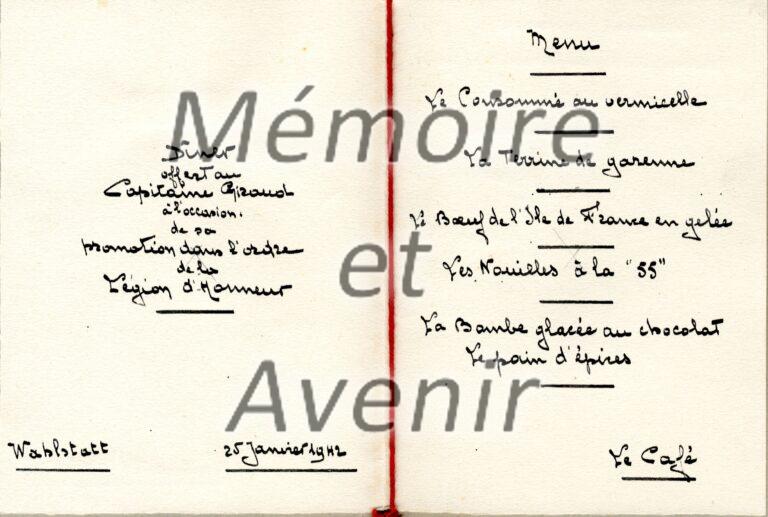 Dîner
offert au
Capitaine Giraud
à l'occasion
de sa
promotion dans l'ordre
de la
Légion d'Honneur
Wahlstatt
25 Janvier 1942
Menu
Le Consommé au vermicelle
La Terrine de garenne
Le Bœuf de l'Ile de France en gelée
Les Nouilles à la "55"
La Bombe glacée au chocolat
Le pain d'épices
Le Café
Mémoire
et
Avenir